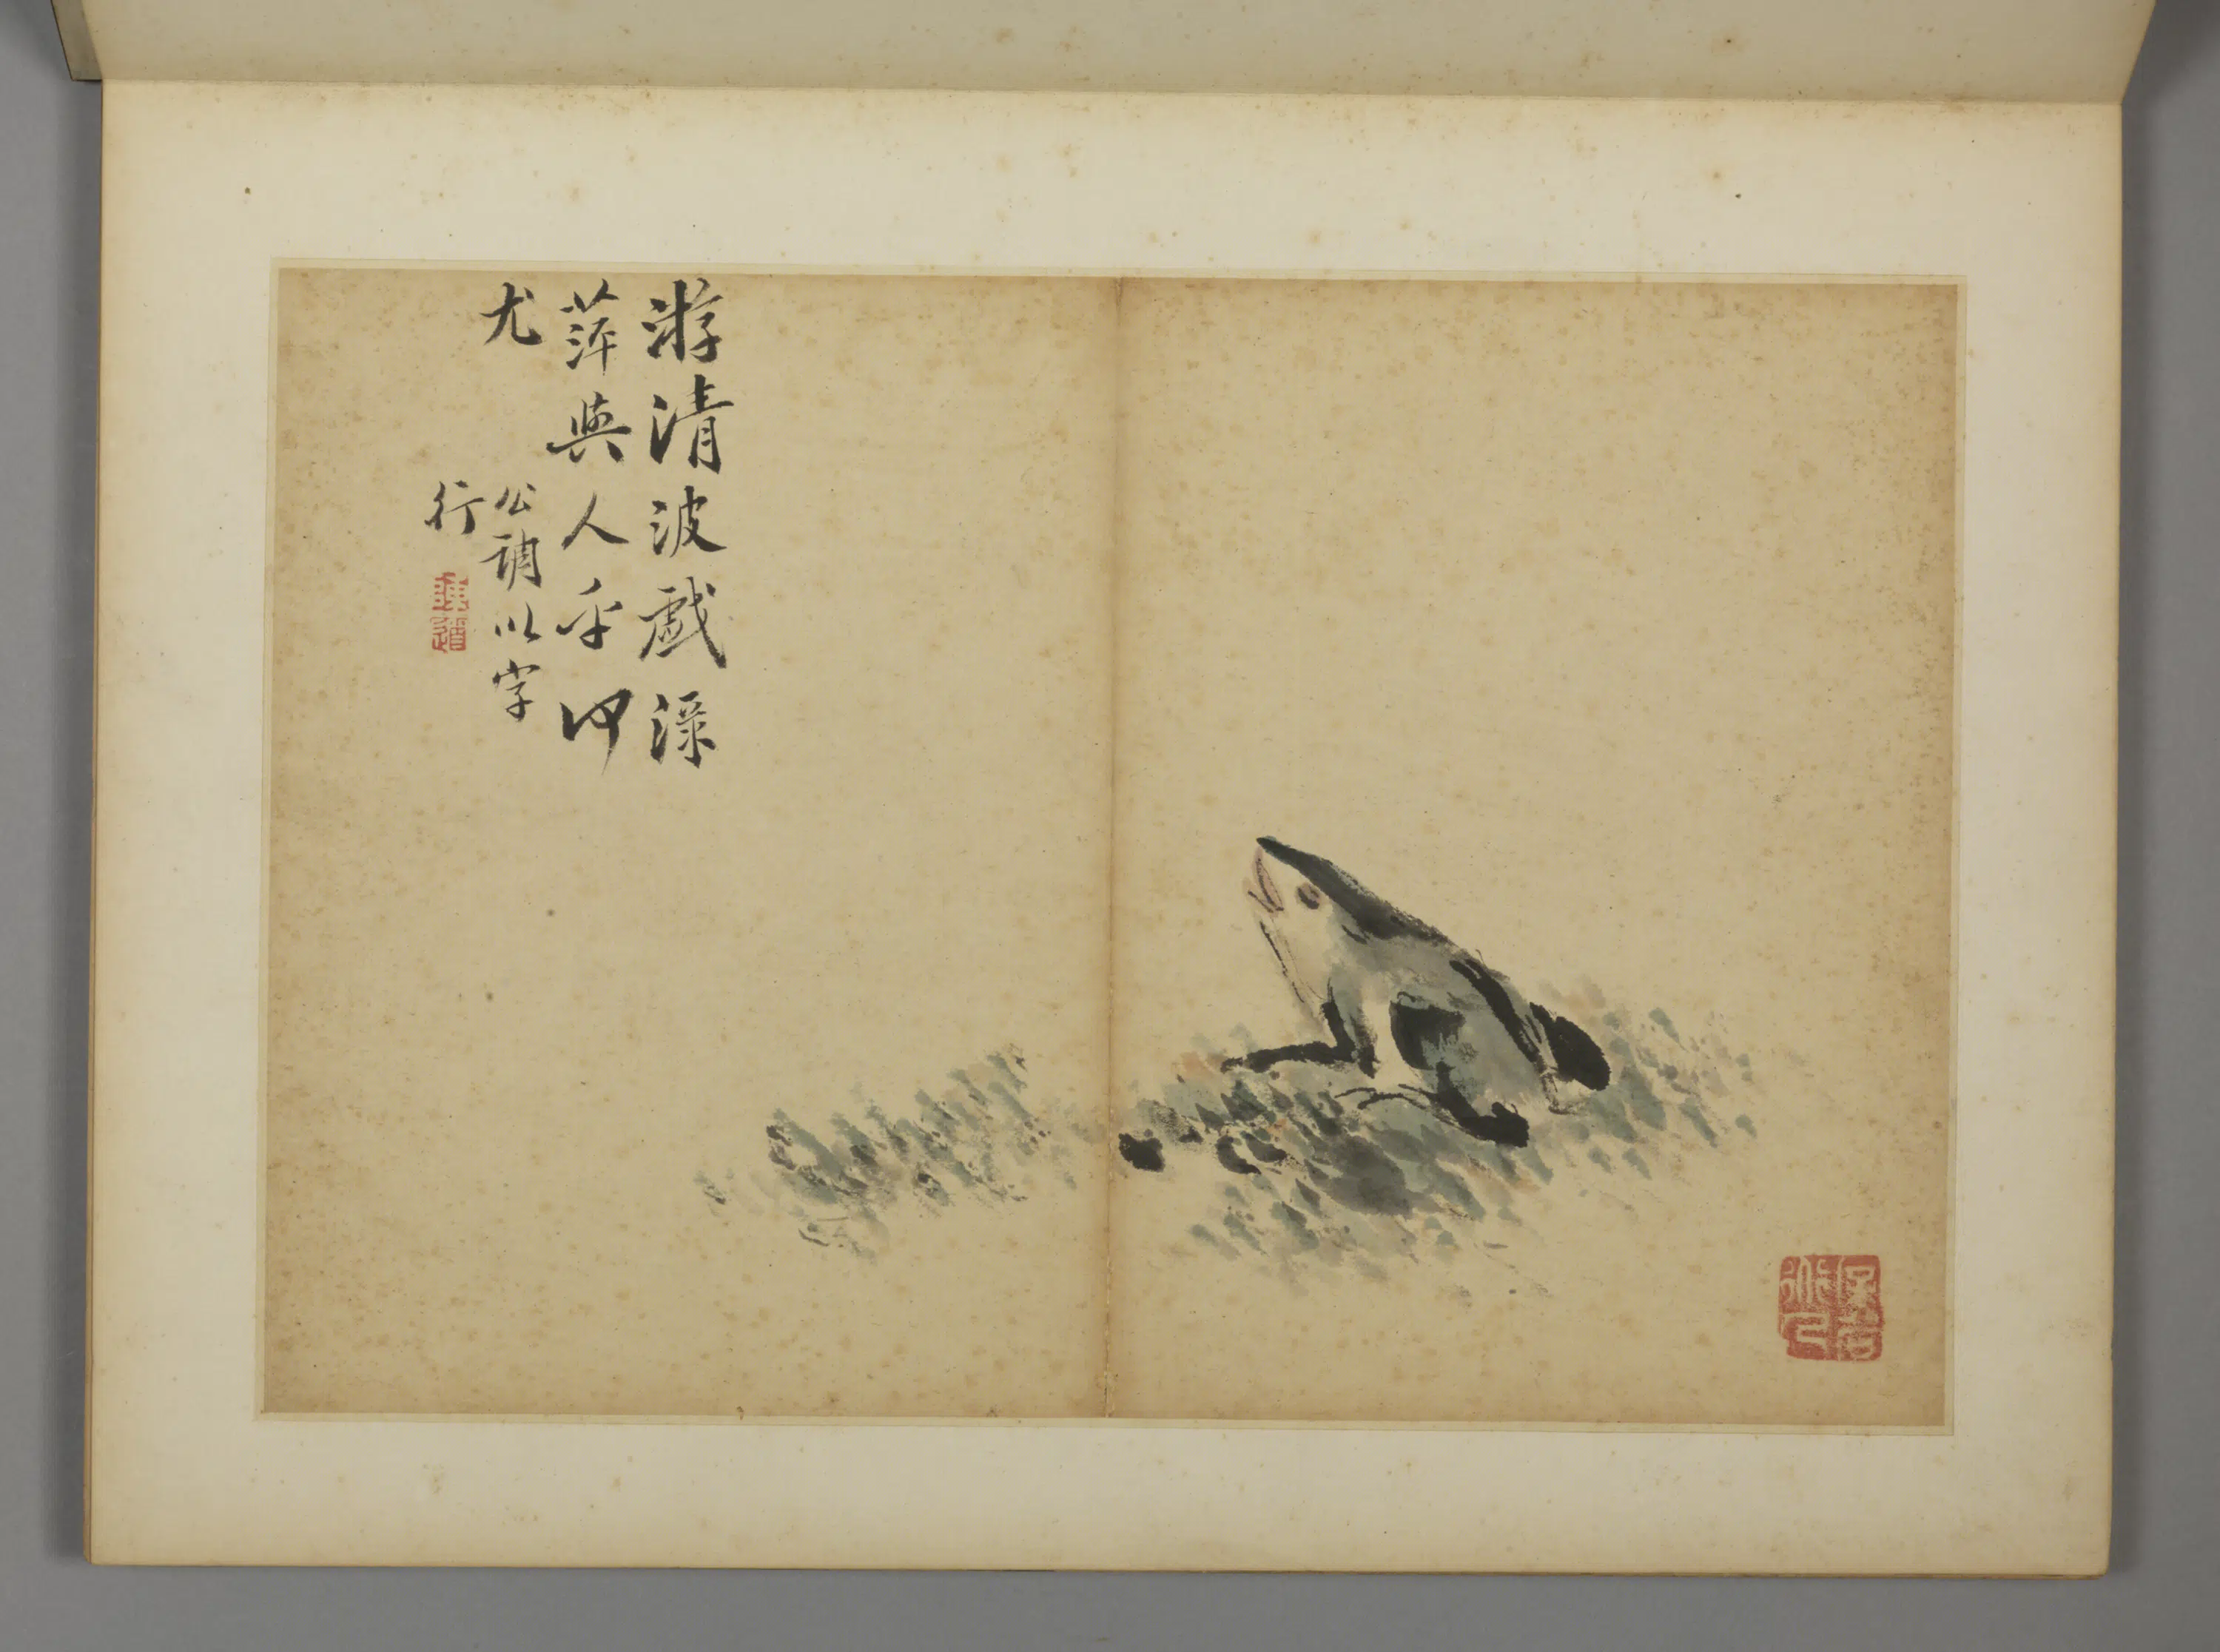 游清波戲淥
萍與人乎何
尤
公調以字
行